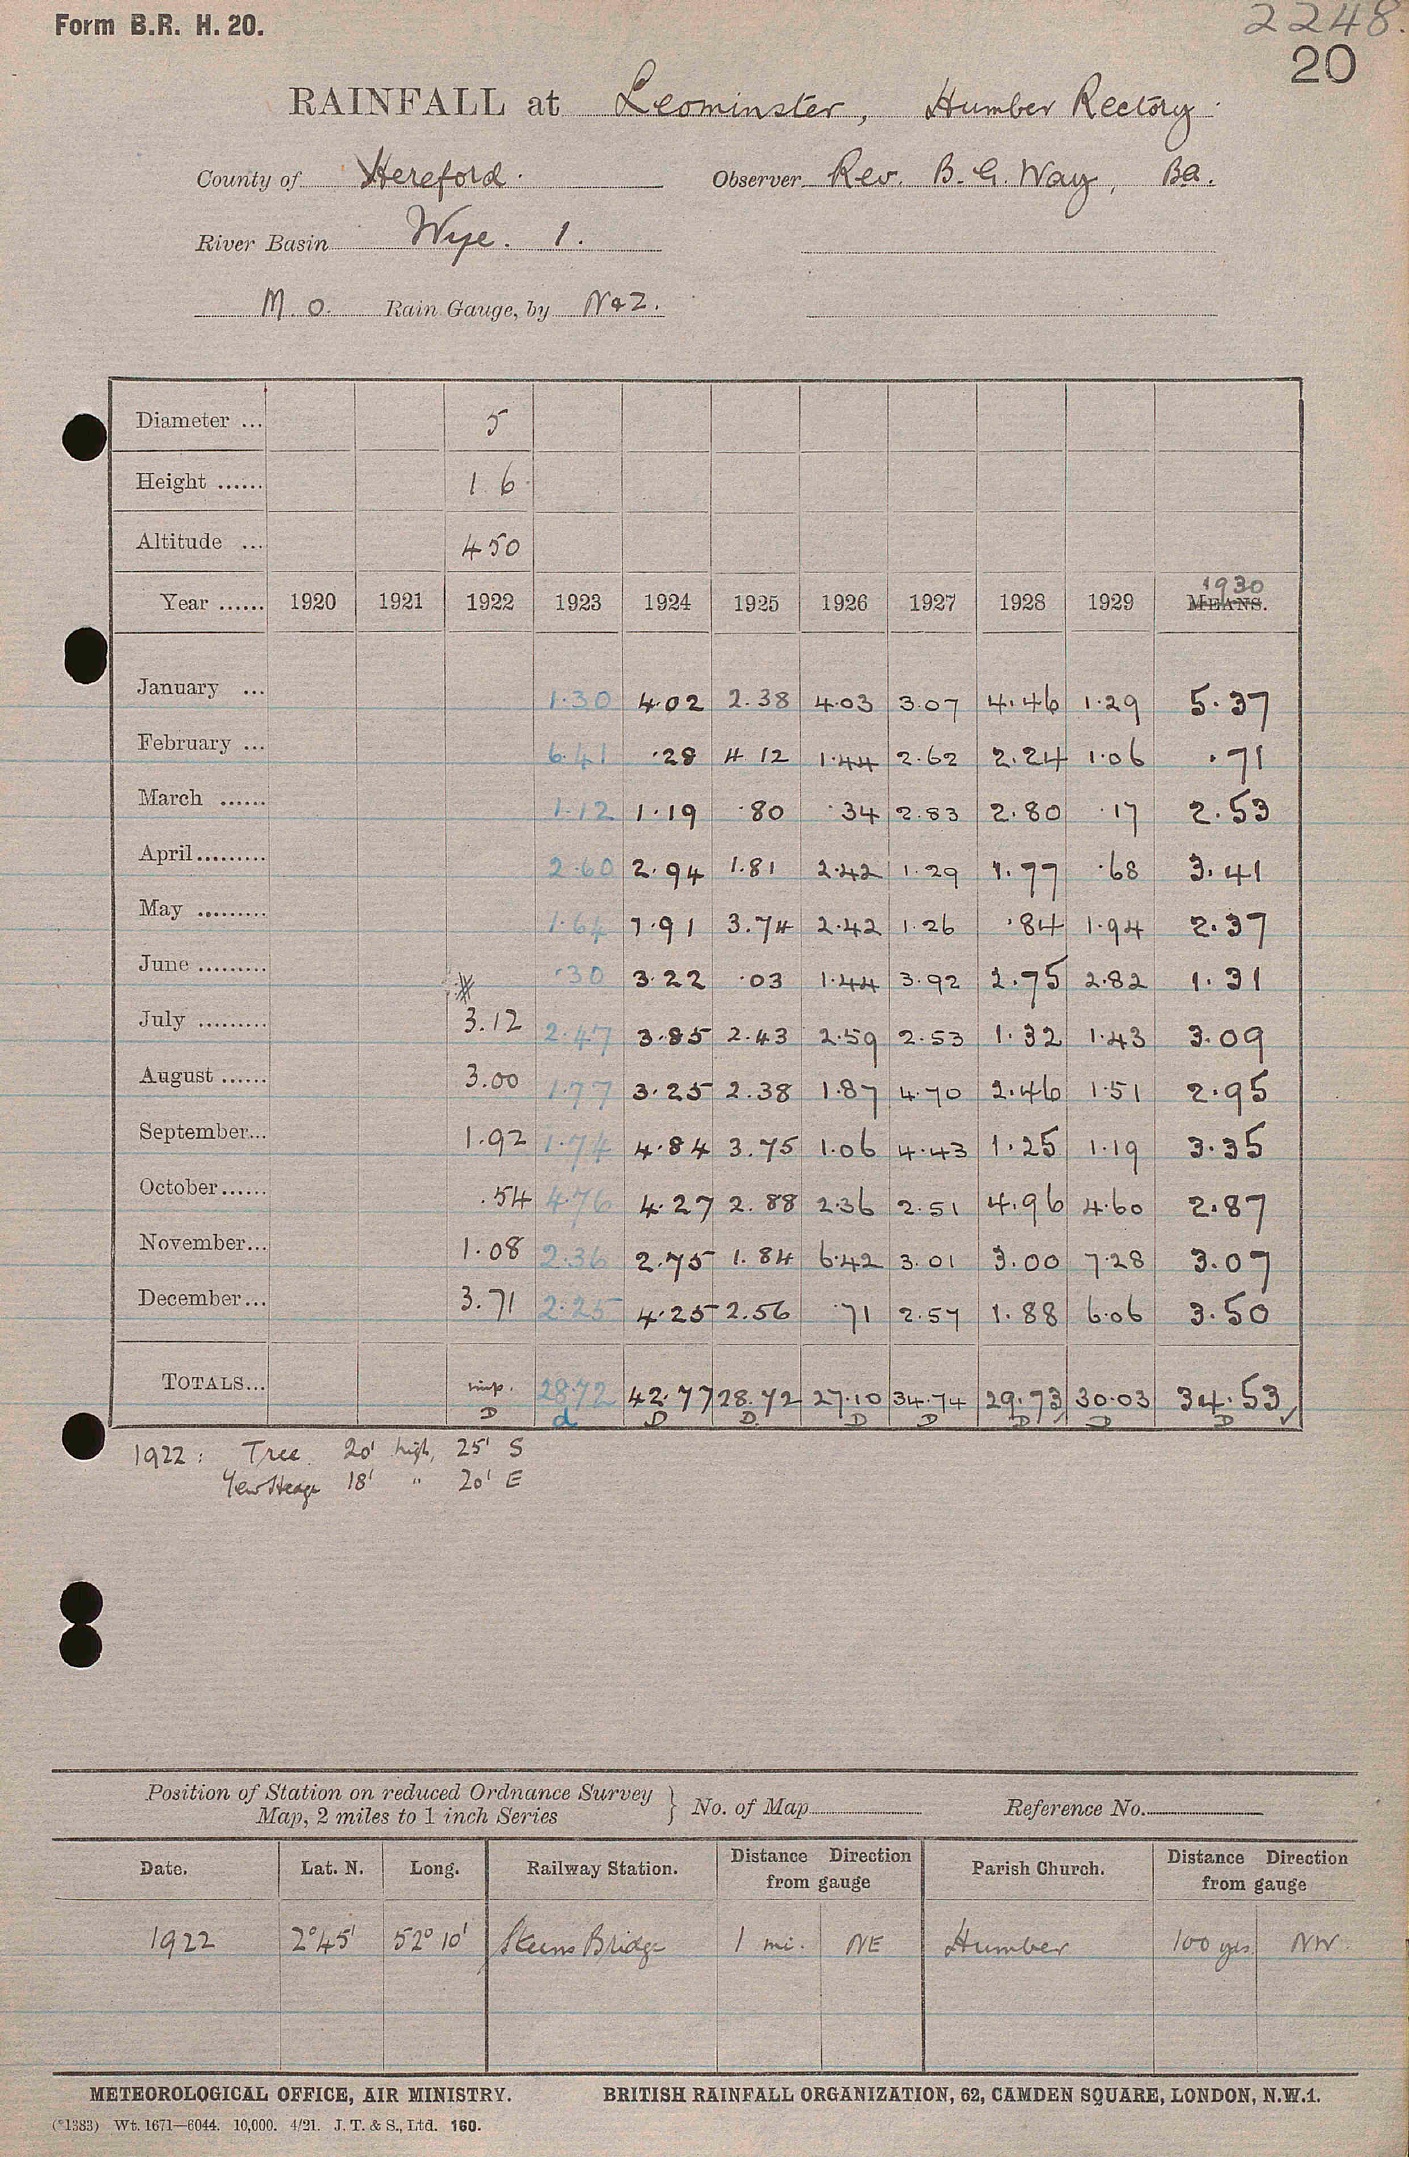 Form B.R. H. 20.
2248.
20
RAINFALL at Leominster, Humber Rectory.
County of Hereford. Observer Rev. B. G. Way, Ba.
River Basin Wye. 1.
M. O. Rain Gauge, by N & Z.
Diameter ... 5
Height ...... 1 6
Altitude ... 450
1930
Year ...... 1920 1921 1922 1923 1924 1925 1926 1927 1928 1929 MEANS.
January ... 1.30 4.02 2.38 4.03 3.07 4.46 1.29 5.37
February ... 6.41 .28 4 12 1.44 2.62 2.24 1.06 .71
March ...... 1.12 1.19 .80 .34 2.83 2.80 .17 2.53
April......... 2.60 2.94 1.81 2.42 1.29 1.77 .68 3.41
May ......... 1.64 7.91 3.74 2.42 1.26 .84 1.94 2.37
June ......... .30 3.22 .03 1.44 3.92 2.75 2.82 1.31
July ......... 3.12 2.47 3.85 2.43 2.59 2.53 1.32 1.43 3.09
August ...... 3.00 1.77 3.25 2.38 1.87 4.70 2.46 1.51 2.95
September... 1.92 1.74 4.84 3.75 1.06 4.43 1.25 1.19 3.35
October...... .54 4.76 4.27 2.88 2.36 2.51 4.96 4.60 2.87
November... 1.08 2.36 2.75 1.84 6.42 3.01 3.00 7.28 3.07
December... 3.71 2.25 4.25 2.56 .71 2.57 1.88 6.06 3.50
TOTALS... imp. 28.72 42.77 28.72 27.10 34.74 29.73 30.03 34.53
D d D D D D D D D
1922: Tree 20' high, 25' S
Yew Hedge 18' " 20' E
Position of Station on reduced Ordnance Survey
Map, 2 miles to 1 inch Series } No. of Map Reference No.
Date. Lat. N. Long. Railway Station. Distance Direction from gauge Parish Church. Distance Direction from gauge
1922 2°45' 52°10' Steens Bridge 1 mi. NE Humber 100 yds NW.
METEOROLOGICAL OFFICE, AIR MINISTRY. BRITISH RAINFALL ORGANIZATION, 62, CAMDEN SQUARE, LONDON, N.W.1.
(*1383) Wt. 1671—6044. 10,000. 4/21. J. T. & S., Ltd. 160.